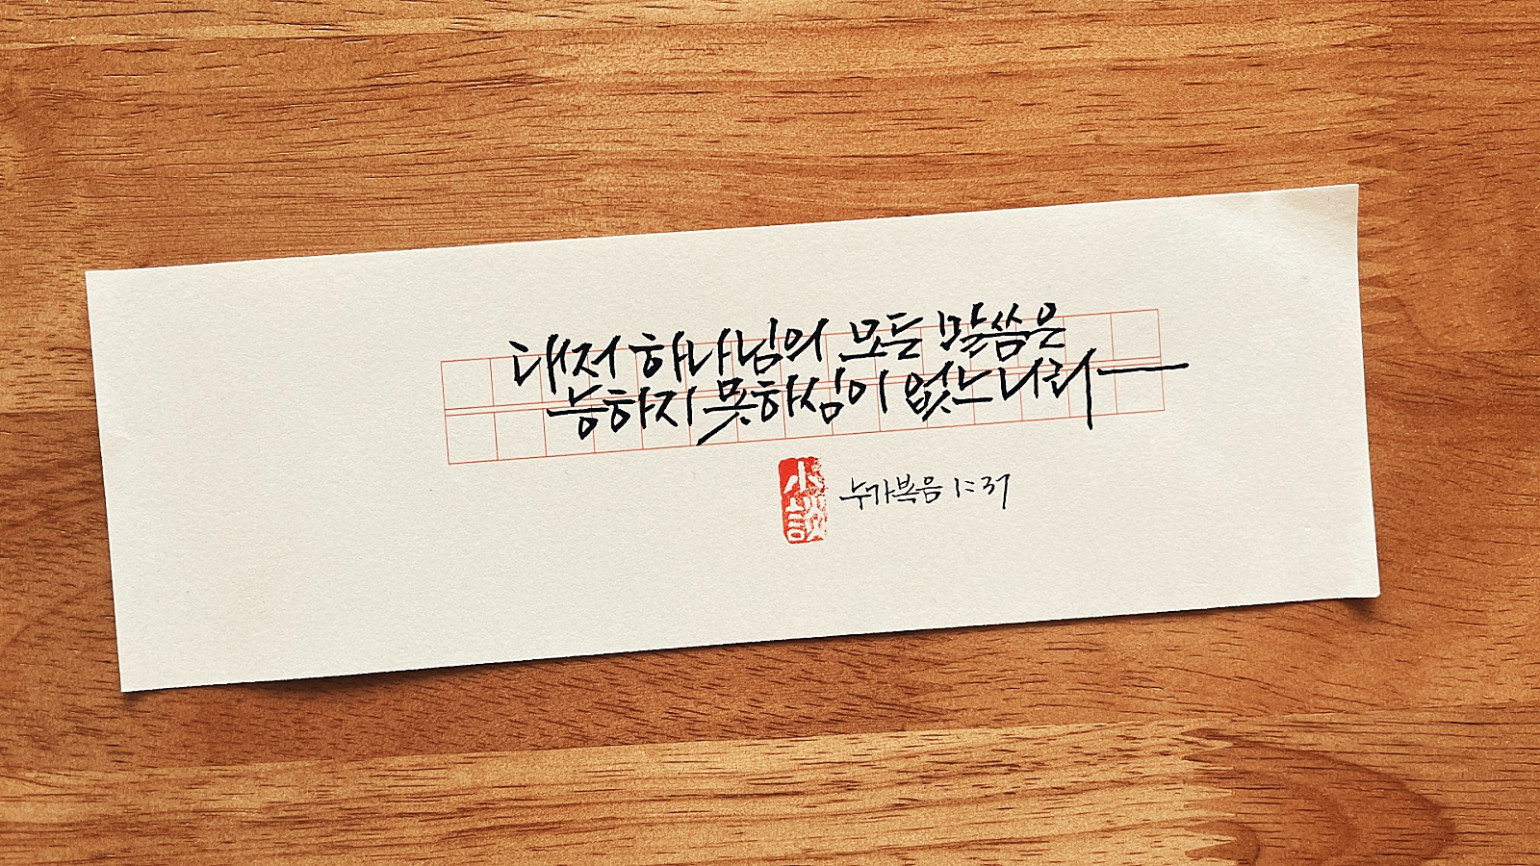 대저 하나님의 모든 말씀은
능하지 못하심이 없느니라
누가복음 1:37